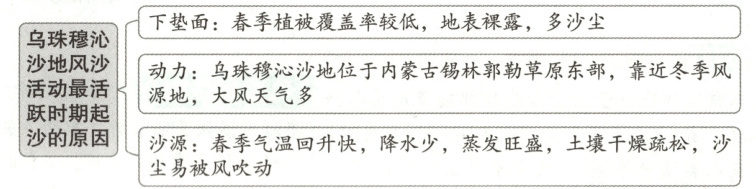 乌珠穆沁
沙地风沙
活动最活
跃时期起
沙的原因
下垫面：春季植被覆盖率较低，地表裸露，多沙尘
动力：乌珠穆沁沙地位于内蒙古锡林郭勒草原东部，靠近冬季风
源地，大风天气多
沙源：春季气温回升快，降水少，蒸发旺盛，土壤干燥疏松，沙
尘易被风吹动